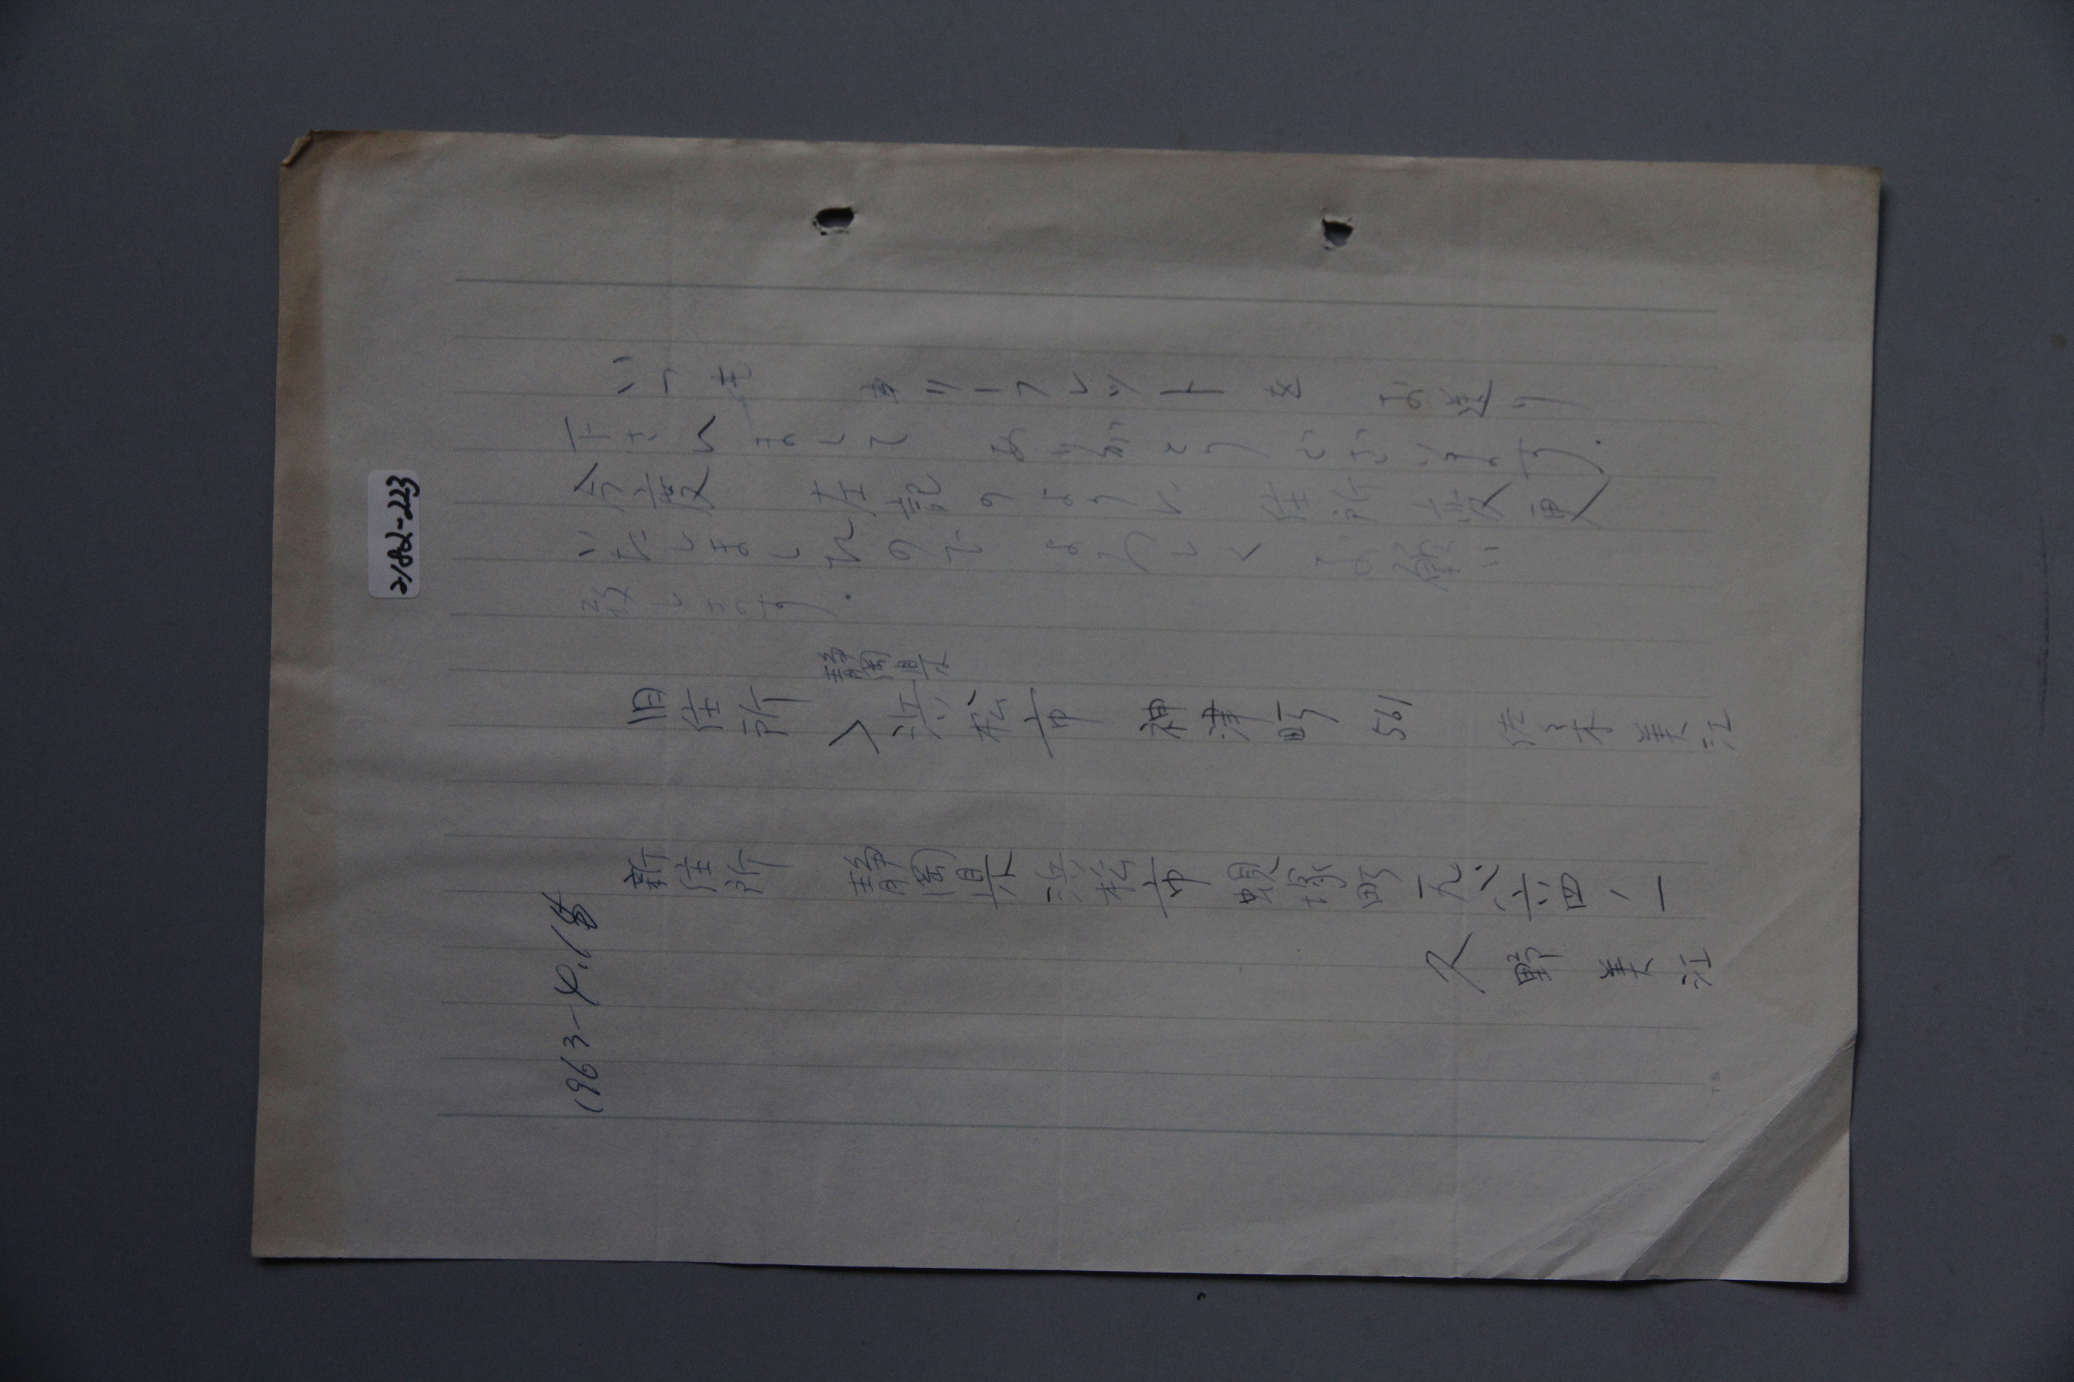 いつも リーフレットを お送り
下さいまして ありがとうございます.
今度 左記のように 住所 変更
いたしましたので よろしく お願い
致します.
静岡県
旧住所 浜松市 神津町 561 佐々木美江
新住所 静岡県浜松市蜆塚町一九六四ノ一
久野美江
1963-4.1